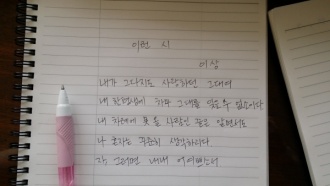 이런 시
이상
내가 그다지도 사랑하던 그대여
내 한평생에 차마 그대를 잊을 수 없소이다
내 차례에 못 올 사랑인 줄은 알면서도
나 혼자는 꾸준히 생각하리다
자 그러면 내내 어여쁘소서